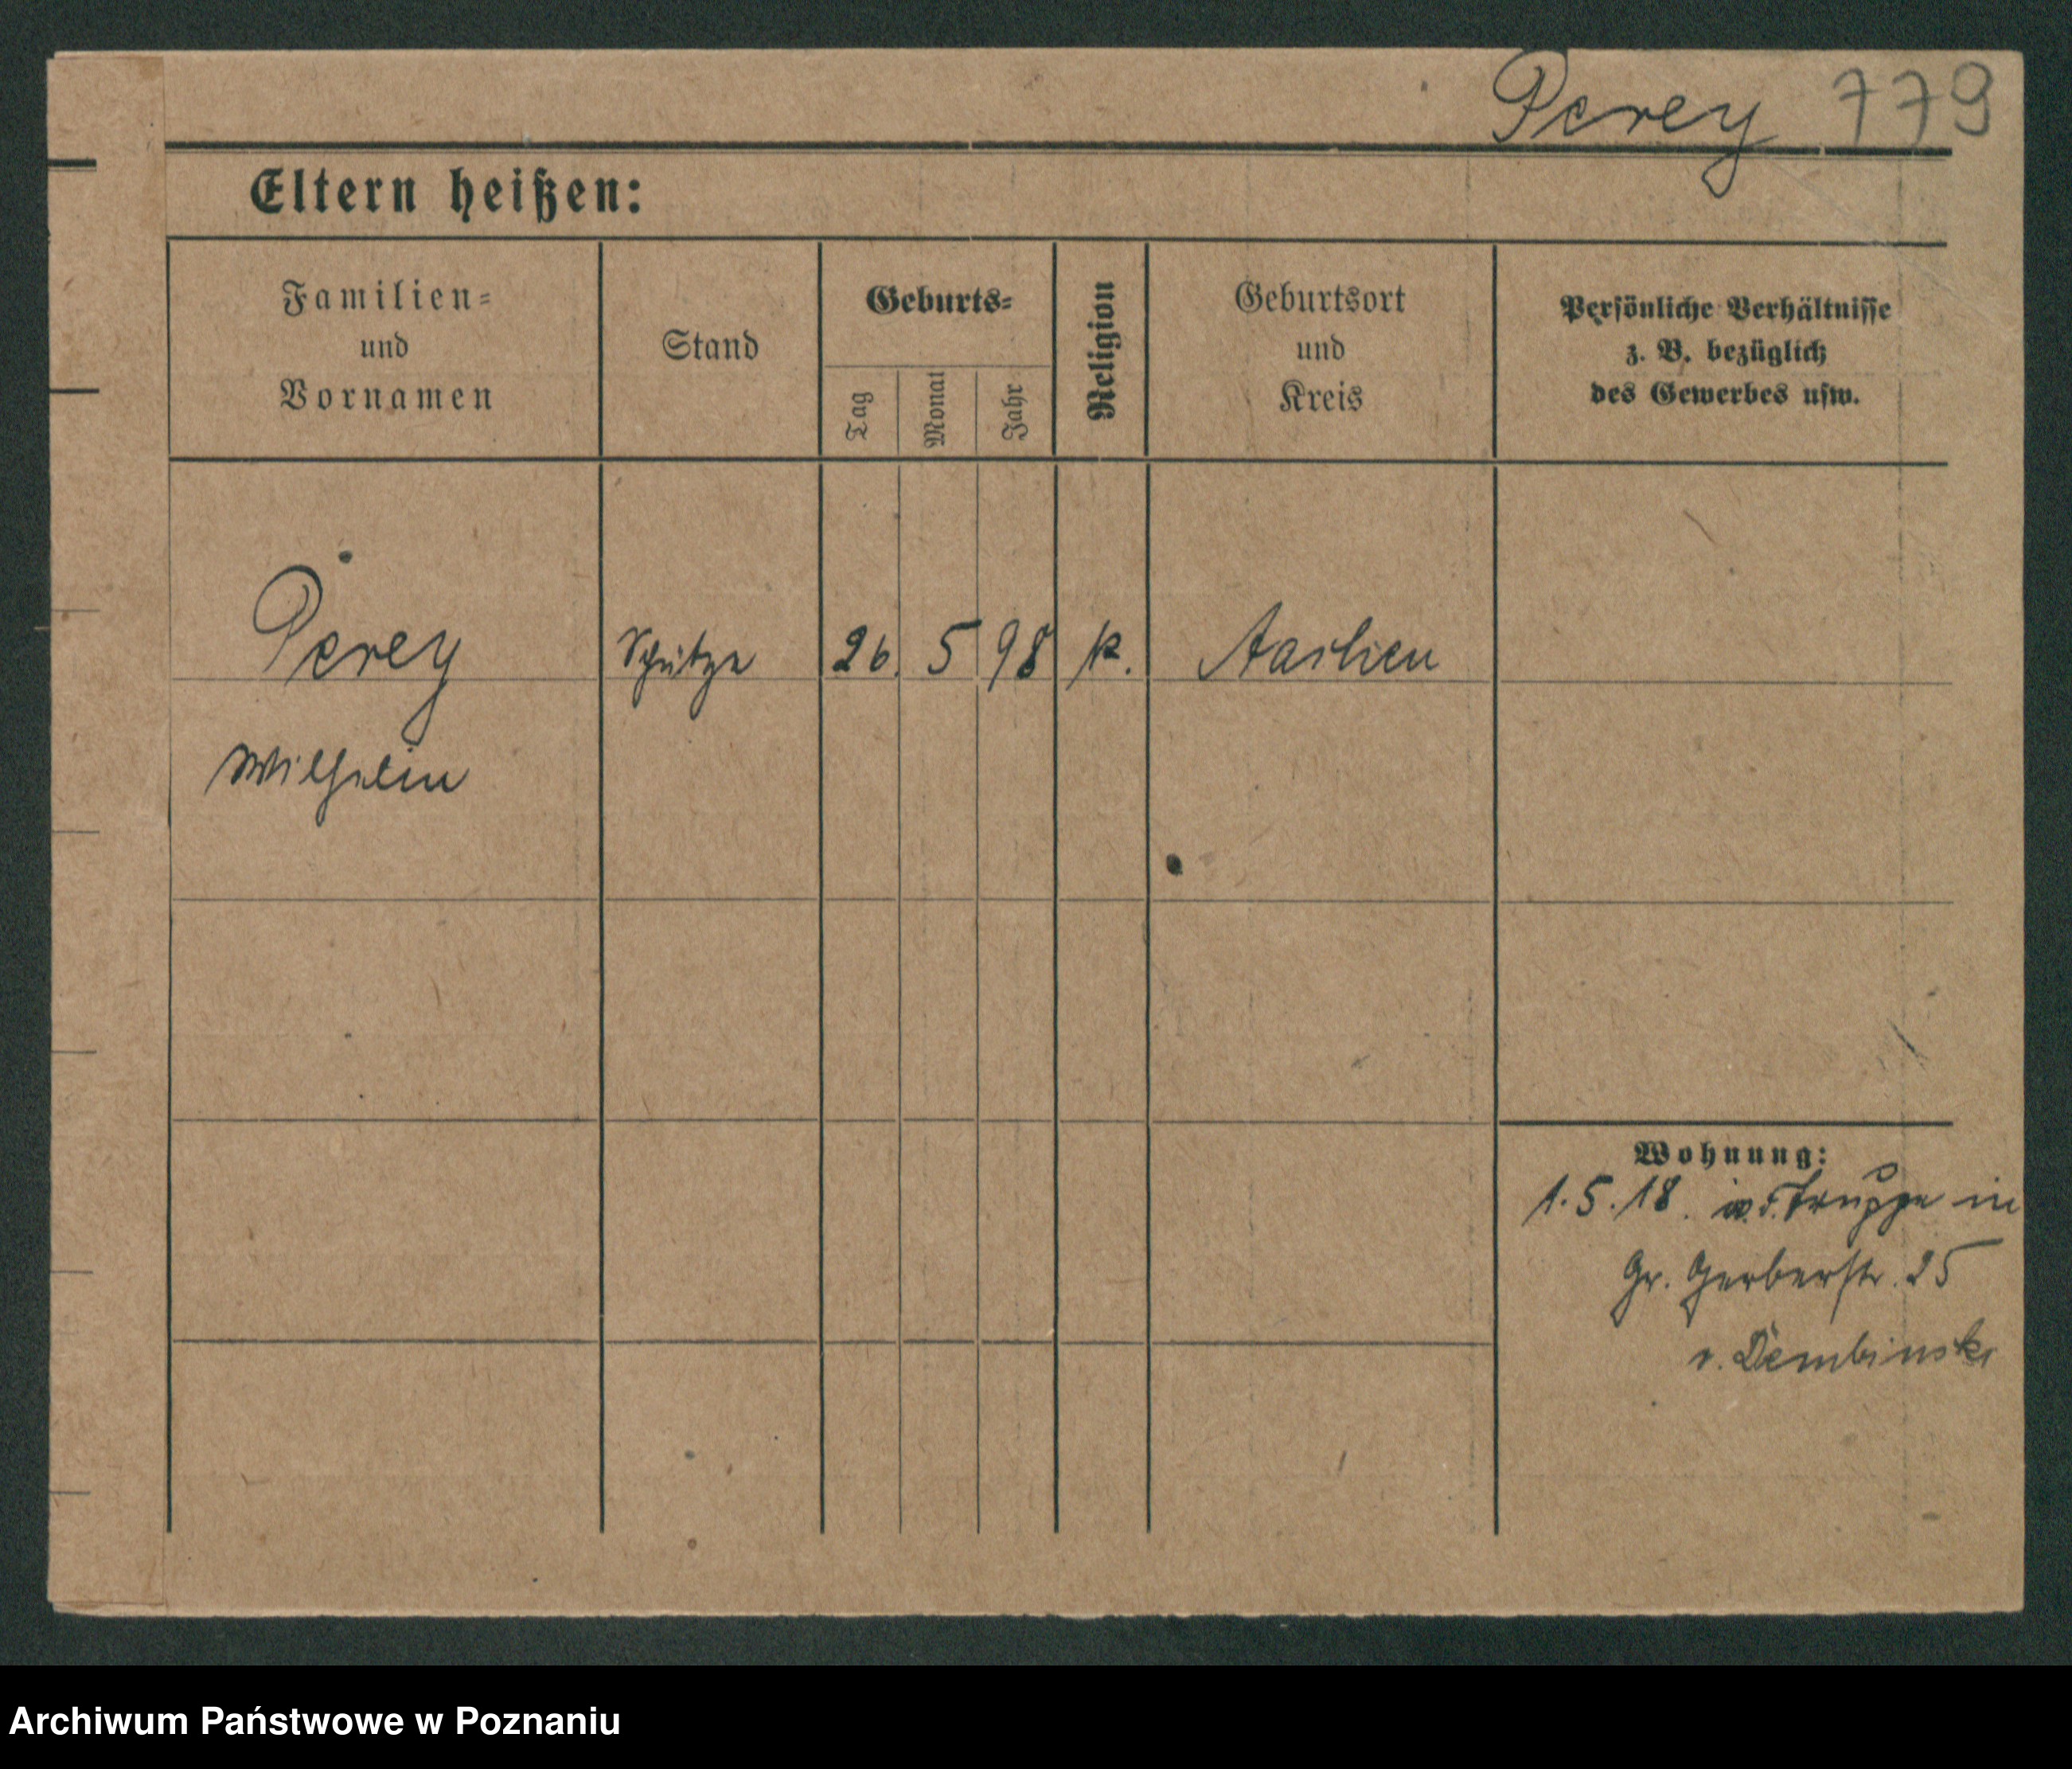 Perey 779
Eltern heißen:
Familien=
und
Vornamen
Stand
Geburts=
Tag
Monat
Jahr
Religion
Geburtsort
und
Kreis
Persönliche Verhältnisse
z. B. bezüglich
des Gewerbes usw.
Perey Schütze 26. 5 98 k.
Wilhelm
Wohnung:
1.5.18. Truppe in
Gr. Gerberstr. 25
v. Dembinski
Archiwum Państwowe w Poznaniu